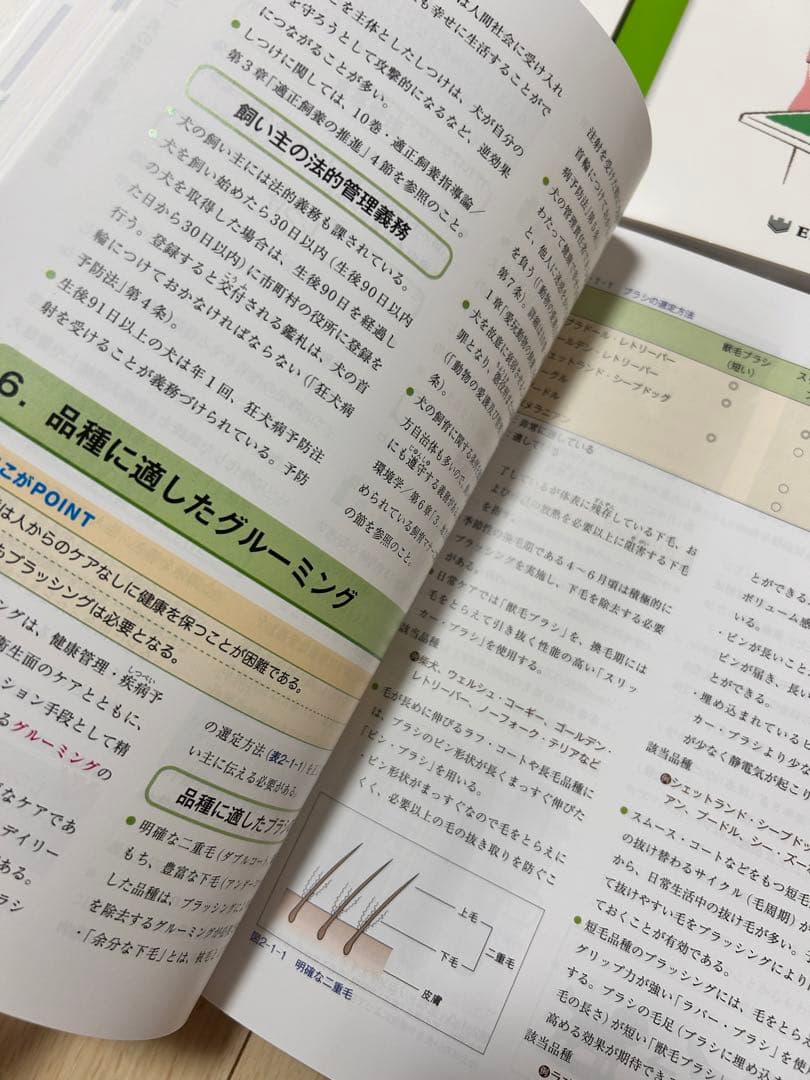 は人間社会に受け入れ
も幸せに生活することがで
を主体としたしつけは、犬が自分の
を守ろうとして攻撃的になるなど、逆効果
につながることが多い。
しつけに関しては、10巻・適正飼養指導論/
第3章「適正飼養の推進」4節を参照のこと。
飼い主の法的管理義務
犬の飼い主には法的義務も課されている。
犬を飼い始めたら30日以内(生後90日以内
の犬を取得した場合は、生後90日を経過し
た日から30日以内)に市町村の役所に登録を
行う。登録すると交付される鑑札は、犬の首
輪につけておかなければならない(「狂犬病
予防法」第4条)。
生後91日以上の犬は年1回、狂犬病予防注
射を受けることが義務づけられている。予防
注射を受けた
首輪につけて
病予防法」第5条
犬の管理責任
わたって健康
と、他人に迷惑を
を負う(「動物の
第7条)。詳細は
1章「愛玩動物の
犬を故意に殺害
罪となり、懲役
(「動物の愛護及び管理
条)。
犬の飼育に関する
方自治体も多いので、
にも遵守する義務が
じゅんしゅ
環境学/第6章「3.
められている飼育マナー
の節を参照のこと。
6. 品種に適したグルーミング
ここがPOINT
は人からのケアなしに健康を保つことが困難である。
もブラッシングは必要となる。
ングは、健康管理・疾病予
しっぺい
衛生面のケアとともに、
ション手段として精
るグルーミングの
なケアであ
デイリー
ある。
ラシ
の選定方法(表2-1-1)を
い主に伝える必要がある。
品種に適したブラシ
明確な二重毛(ダブルコート
もち、豊富な下毛(アンダー
した品種は、ブラッシングに
を除去するグルーミングが
・「余分な下毛」とは、
-1-1 ブラシの選定方法
獣毛ブラシ
(短い)
ラブラドール・レトリーバー
ゴールデン・レトリーバー
シェットランド・シープドッグ
ビーグル
プードル
ポメラニアン
非常に適している
適している
了しているが体表に残存している下毛、お
ざんぞん
よび の放熱を必要以上に阻害する下毛
季節性の換毛期である4～6月頃は積極的に
ブラッシングを実施し、下毛を除去する必要
がある。
・日常ケアでは「獣毛ブラシ」を、換毛期には
毛をとらえて引き抜く性能の高い「スリッ
カー・ブラシ」を使用する。
該当品種
例柴犬、ウェルシュ・コーギー、ゴールデン・
レトリーバー、ノーフォーク・テリアなど
毛が長めに伸びるラフ・コートや長毛品種に
は、ブラシのピン形状が長くまっすぐ伸びた
「ピン・ブラシ」を用いる。
・ピン形状がまっすぐなので毛をとらえに
くく、必要以上の毛の抜き取りを防ぐこ
上毛
下毛
二重毛
皮膚
図2-1-1 明確な二重毛
とができる
ボリューム感
いる。
・ピンが長いこ
ピンが届き、長い
とができる。
・埋め込まれているピ
カー・ブラシより少な
が少なく静電気が起こり
該当品種
例シェットランド・シープドッ
アン、プードル、シー・ズー
スムース・コートなどをもつ短毛
の抜け替わるサイクル(毛周期)が
から、日常生活中の抜け毛が多い。
て抜けやすい毛をブラッシングにより
ておくことが有効である。
短毛品種のブラッシングには、毛をとらえ
グリップ力が強い「ラバー・ブラシ」を使
する。ブラシの毛足(ブラシに埋め込ま
毛の長さ)が短い「獣毛ブラシ
高める効果が期待でき
該当品種